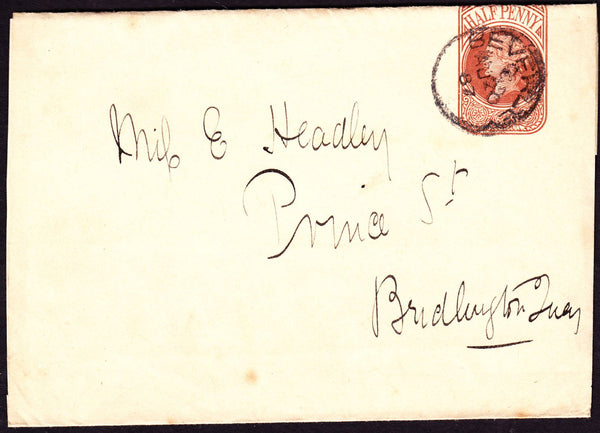 HALFPENNY
BEVERLEY
87
Miſs E Headley
Prince St
Bridlington Quay